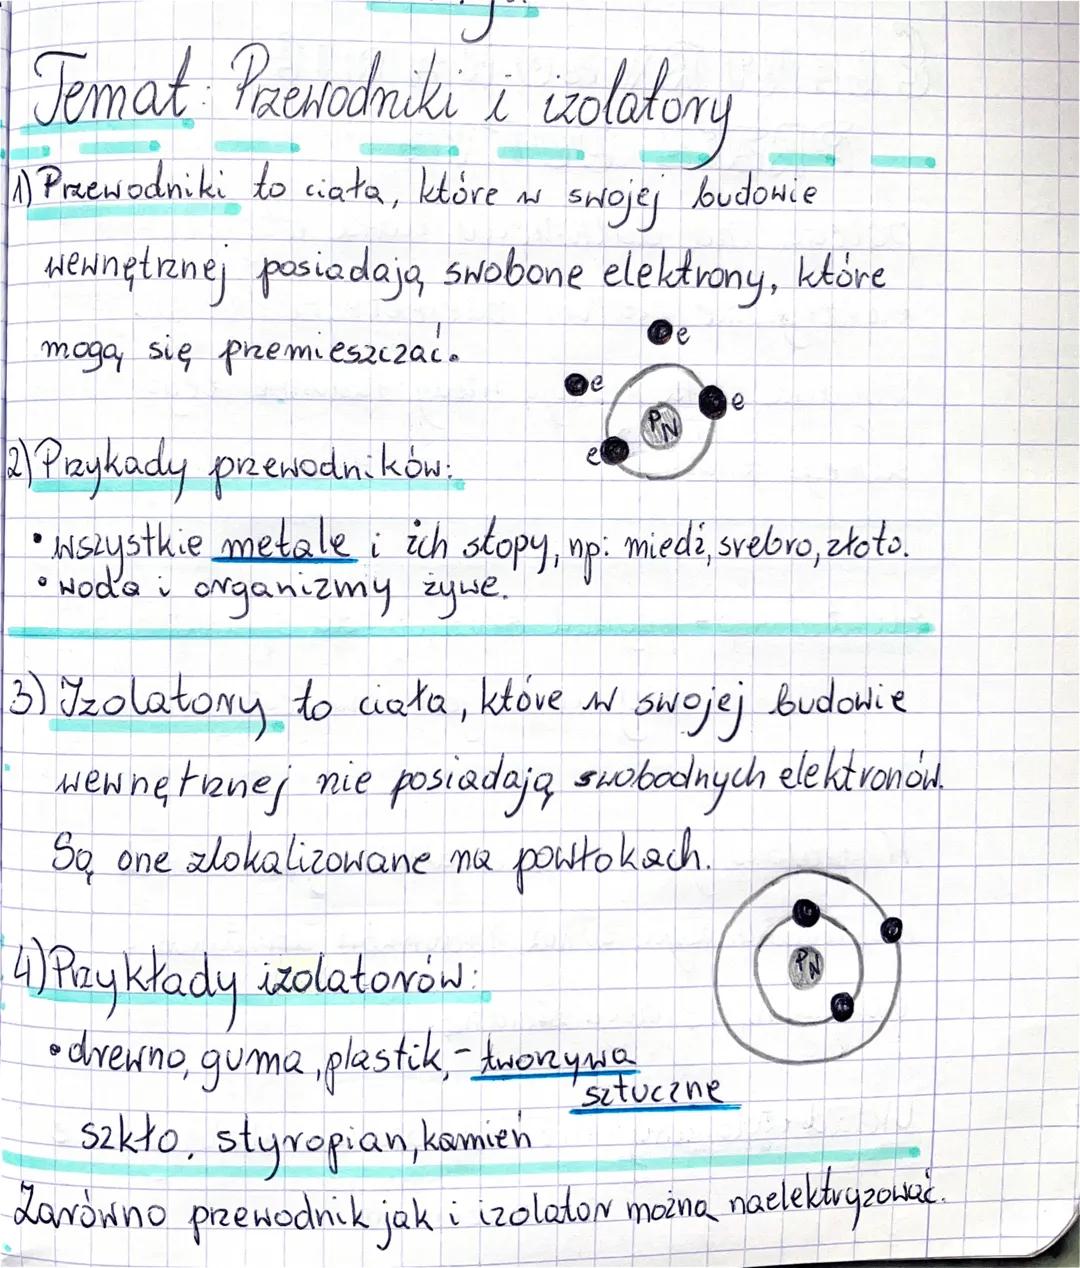 Temat: Przewodniki i izolatory
1) Przewodniki to ciała, które w swojej budowie
wewnętrznej posiadają swobone elektrony, które
mogą się przemieszczać.
e
e
e
PN
e
2) Przykady przewodników:
• wszystkie metale i ich stopy, np: miedź, srebro, złoto.
• woda i organizmy żywe.
3) Izolatory to ciała, które w swojej budowie
wewnętrznej nie posiadają swobodnych elektronów.
Są one zlokalizowane na powłokach.
PN
4) Przykłady izolatorów:
• drewno, guma, plastik, - tworzywa
sztuczne
szkło, styropian, kamień
Zarówno przewodnik jak i izolator można naelektryzować.